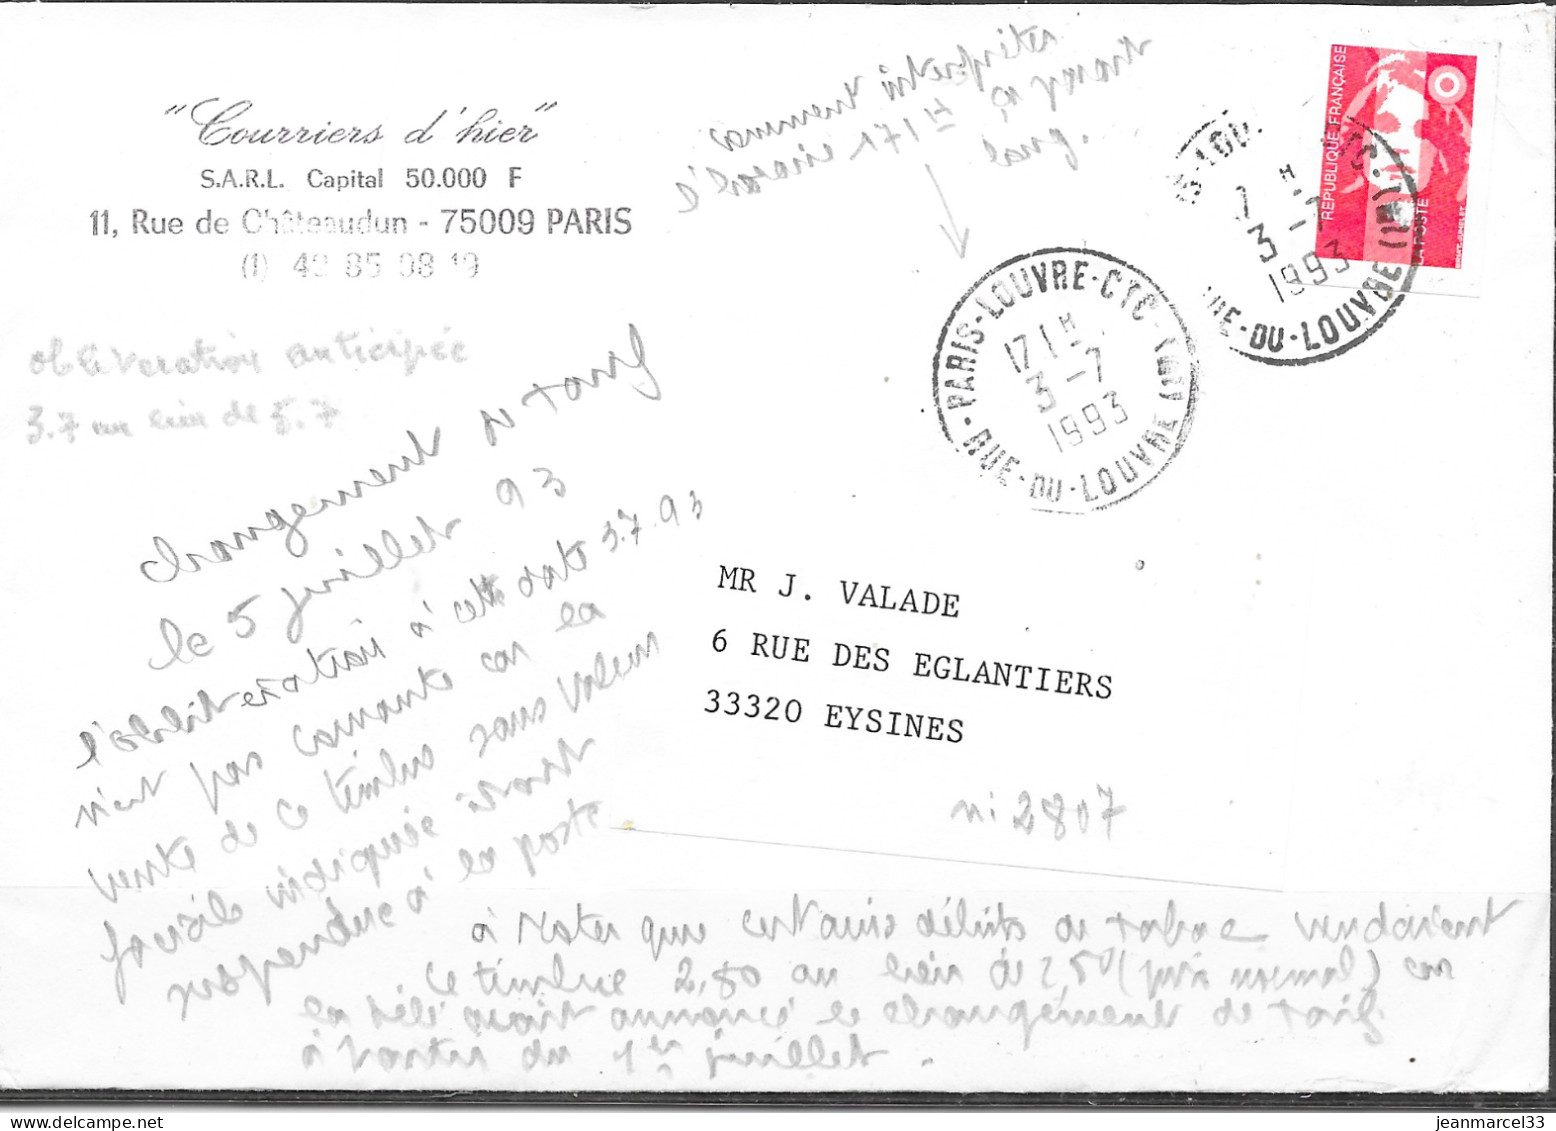 "Courriers d'hier"
S.A.R.L. Capital 50.000 F
11, Rue de Châteaudun - 75009 PARIS
(1) 48 85 98 19
comment interpréter
d'horaire 171H ça paraît
long.
RÉPUBLIQUE FRANÇAISE
LA POSTE
PARIS-LOUVRE-CTC-1
17 1H
3-7
1993
RUE-DU-LOUVRE (1ER)
3-7
1993
RUE-DU-LOUVRE (1
oblitération anticipée
3.7 au lieu de 5.7
changement de tarif
le 5 juillet 93
l'oblitération à cette date 3.7.93
n'est pas courante car la
vente de ce timbre sans valeur
faciale indiquée était
suspendue à la poste
MR J. VALADE
6 RUE DES EGLANTIERS
33320 EYSINES
n: 2807
à noter que certains débits de tabac vendaient
ce timbre 2,80 au lieu de 2,50 (prix normal) car
la télé avait annoncé le changement de tarif
à partir du 1er juillet.
jeanmarcel33